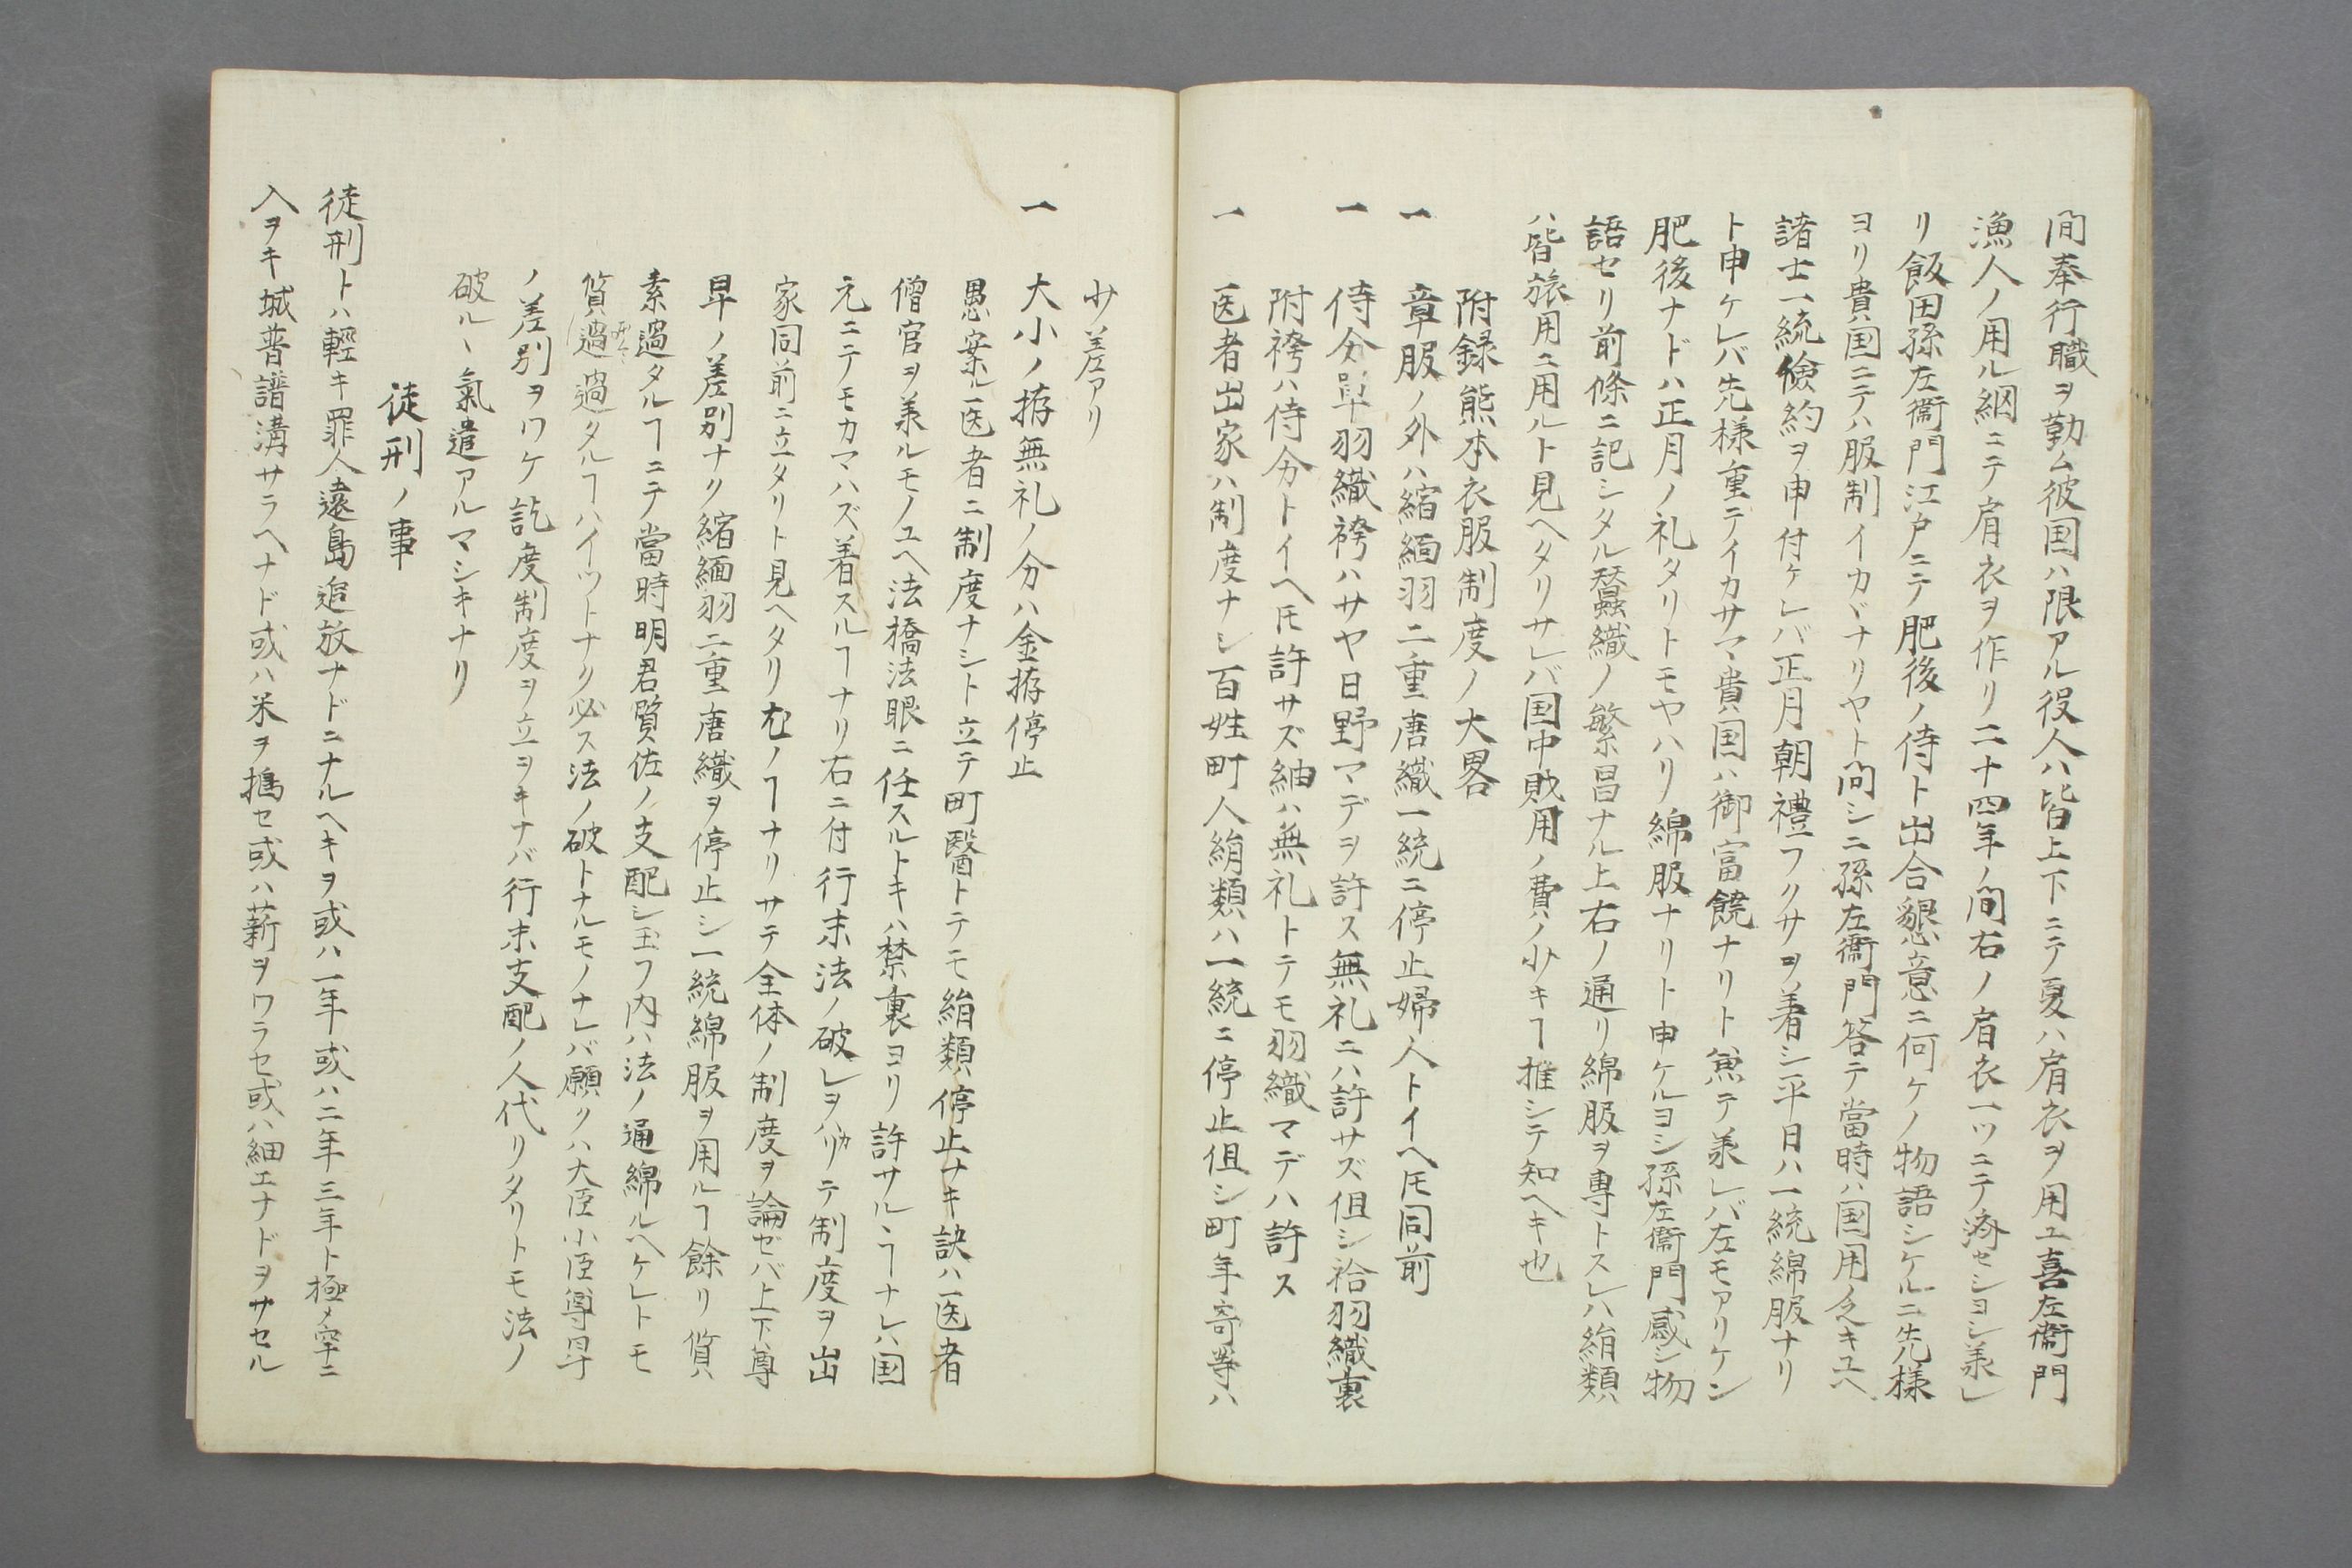 間奉行職ヲ勤ム彼国ハ限アル役人ハ皆上下ニテ夏ハ肩衣ヲ用ユ喜左衞門
漁人ノ用ル網ニテ肩衣ヲ作リ二十四年ノ間右ノ肩衣一ツニテ済セシヨシ羕レ
リ飯田孫左衞門江戸ニテ肥後ノ侍ト出合懇意ニ何ケノ物語シケルニ先様
ヨリ貴国ニテハ服制イカヾナリヤト問シニ孫左衞門答テ當時ハ国用乏キユヘ
諸士一統儉約ヲ申付ケレバ正月朝禮フクサヲ着シ平日ハ一統綿服ナリ
ト申ケレバ先様重テイカサマ貴国ハ御富饒ナリト兼テ羕レバ左モアリケン
肥後ナドハ正月ノ礼タリトモヤハリ綿服ナリト申ケルヨシ孫左衞門感シ物
語セリ前條ニ記シタル蠶織ノ繁昌ナル上右ノ通リ綿服ヲ専トスレハ絹類
ハ皆旅用ニ用ルト見ヘタリサレバ国中財用ノ費ノ少キヿ推シテ知ヘキ也
附録熊本衣服制度ノ大畧
一 章服ノ外ハ縮緬羽二重唐織一統ニ停止婦人トイヘ𪜈同前
一 侍分單羽織袴ハサヤ日野マデヲ許ス無礼ニハ許サズ但シ袷羽織裏
附袴ハ侍分トイヘ𪜈許サズ紬ハ無礼トテモ羽織マデハ許ス
一 医者出家ハ制度ナシ百姓町人絹類ハ一統ニ停止但シ町年寄等ハ
少差アリ
一 大小ノ拵無礼ノ分ハ金拵停止
愚案ル医者ニ制度ナシト立テ町醫トテモ絹類停止ナキ訣ハ医者
僧官ヲ羕ルモノユヘ法橋法眼ニ任スルトキハ禁裏ヨリ許サルヽヿナレハ国
元ニテモカマハズ着スルヿナリ右ニ付行末法ノ破レヲハカリテ制度ヲ出
家同前ニ立タリト見ヘタリ尤ノヿナリサテ全体ノ制度ヲ論ゼバ上下尊
卑ノ差別ナク縮緬羽二重唐織ヲ停止シ一統綿服ヲ用ルヿ餘リ質
素過タルヿニテ當時明君賢佐ノ支配シ玉フ内ハ法ノ通綿ルヘケレトモ
質過過タルヿハイツトナク必ス法ノ破トナルモノナレバ願クハ大臣小臣尊卑
ノ差別ヲワケ訖度制度ヲ立ヲキナバ行末支配ノ人代リタリトモ法ノ
破ルヽ氣遣アルマシキナリ
徒刑ノ事
徒刑トハ輕キ罪人遠島追放ナドニナルヘキヲ或ハ一年或ハ二年三年ト極メ牢ニ
入ヲキ城普譜溝サラヘナド或ハ米ヲ搗セ或ハ薪ヲワラセ或ハ細工ナドヲサセル